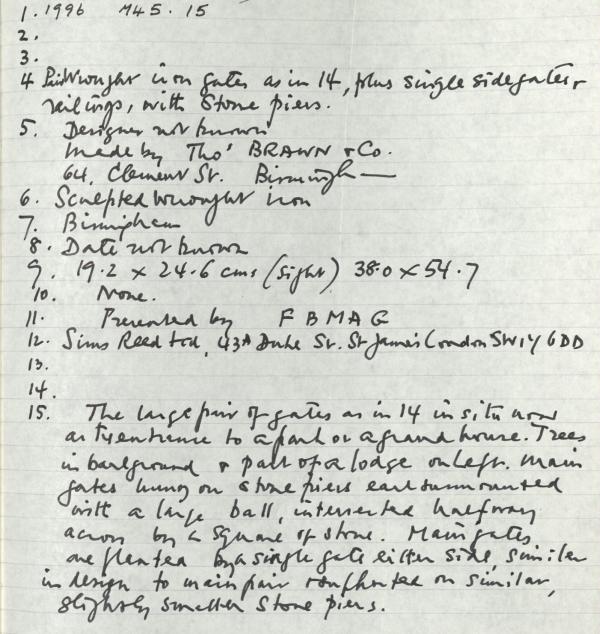 1. 1996 M45.15
2.
3.
4 Pair Wrought iron gates as in 14, plus single side gates +
railings, with Stone piers.
5. Designer not known
made by Tho' BRAWN + Co.
64, Clement St. Birmingham
6. Sculpted wrought iron
7. Birmingham
8. Date not known
9. 19.2 x 24.6 cms (sight) 38.0 x 54.7
10. None.
11. Presented by F B M A G
12. Sims Reed Ltd, 43A Duke St. St James London SW1Y 6DD
13.
14.
15. The large pair of gates as in 14 in situ now
as the entrance to a park or a grand house. Trees
in background + part of a lodge on left. Main
gates hung on stone piers each surmounted
with a large ball, intersected halfway
across by a square of stone. Main gates
are flanked by a single gate either side, similar
in design to main pair on similar,
slightly smaller stone piers.